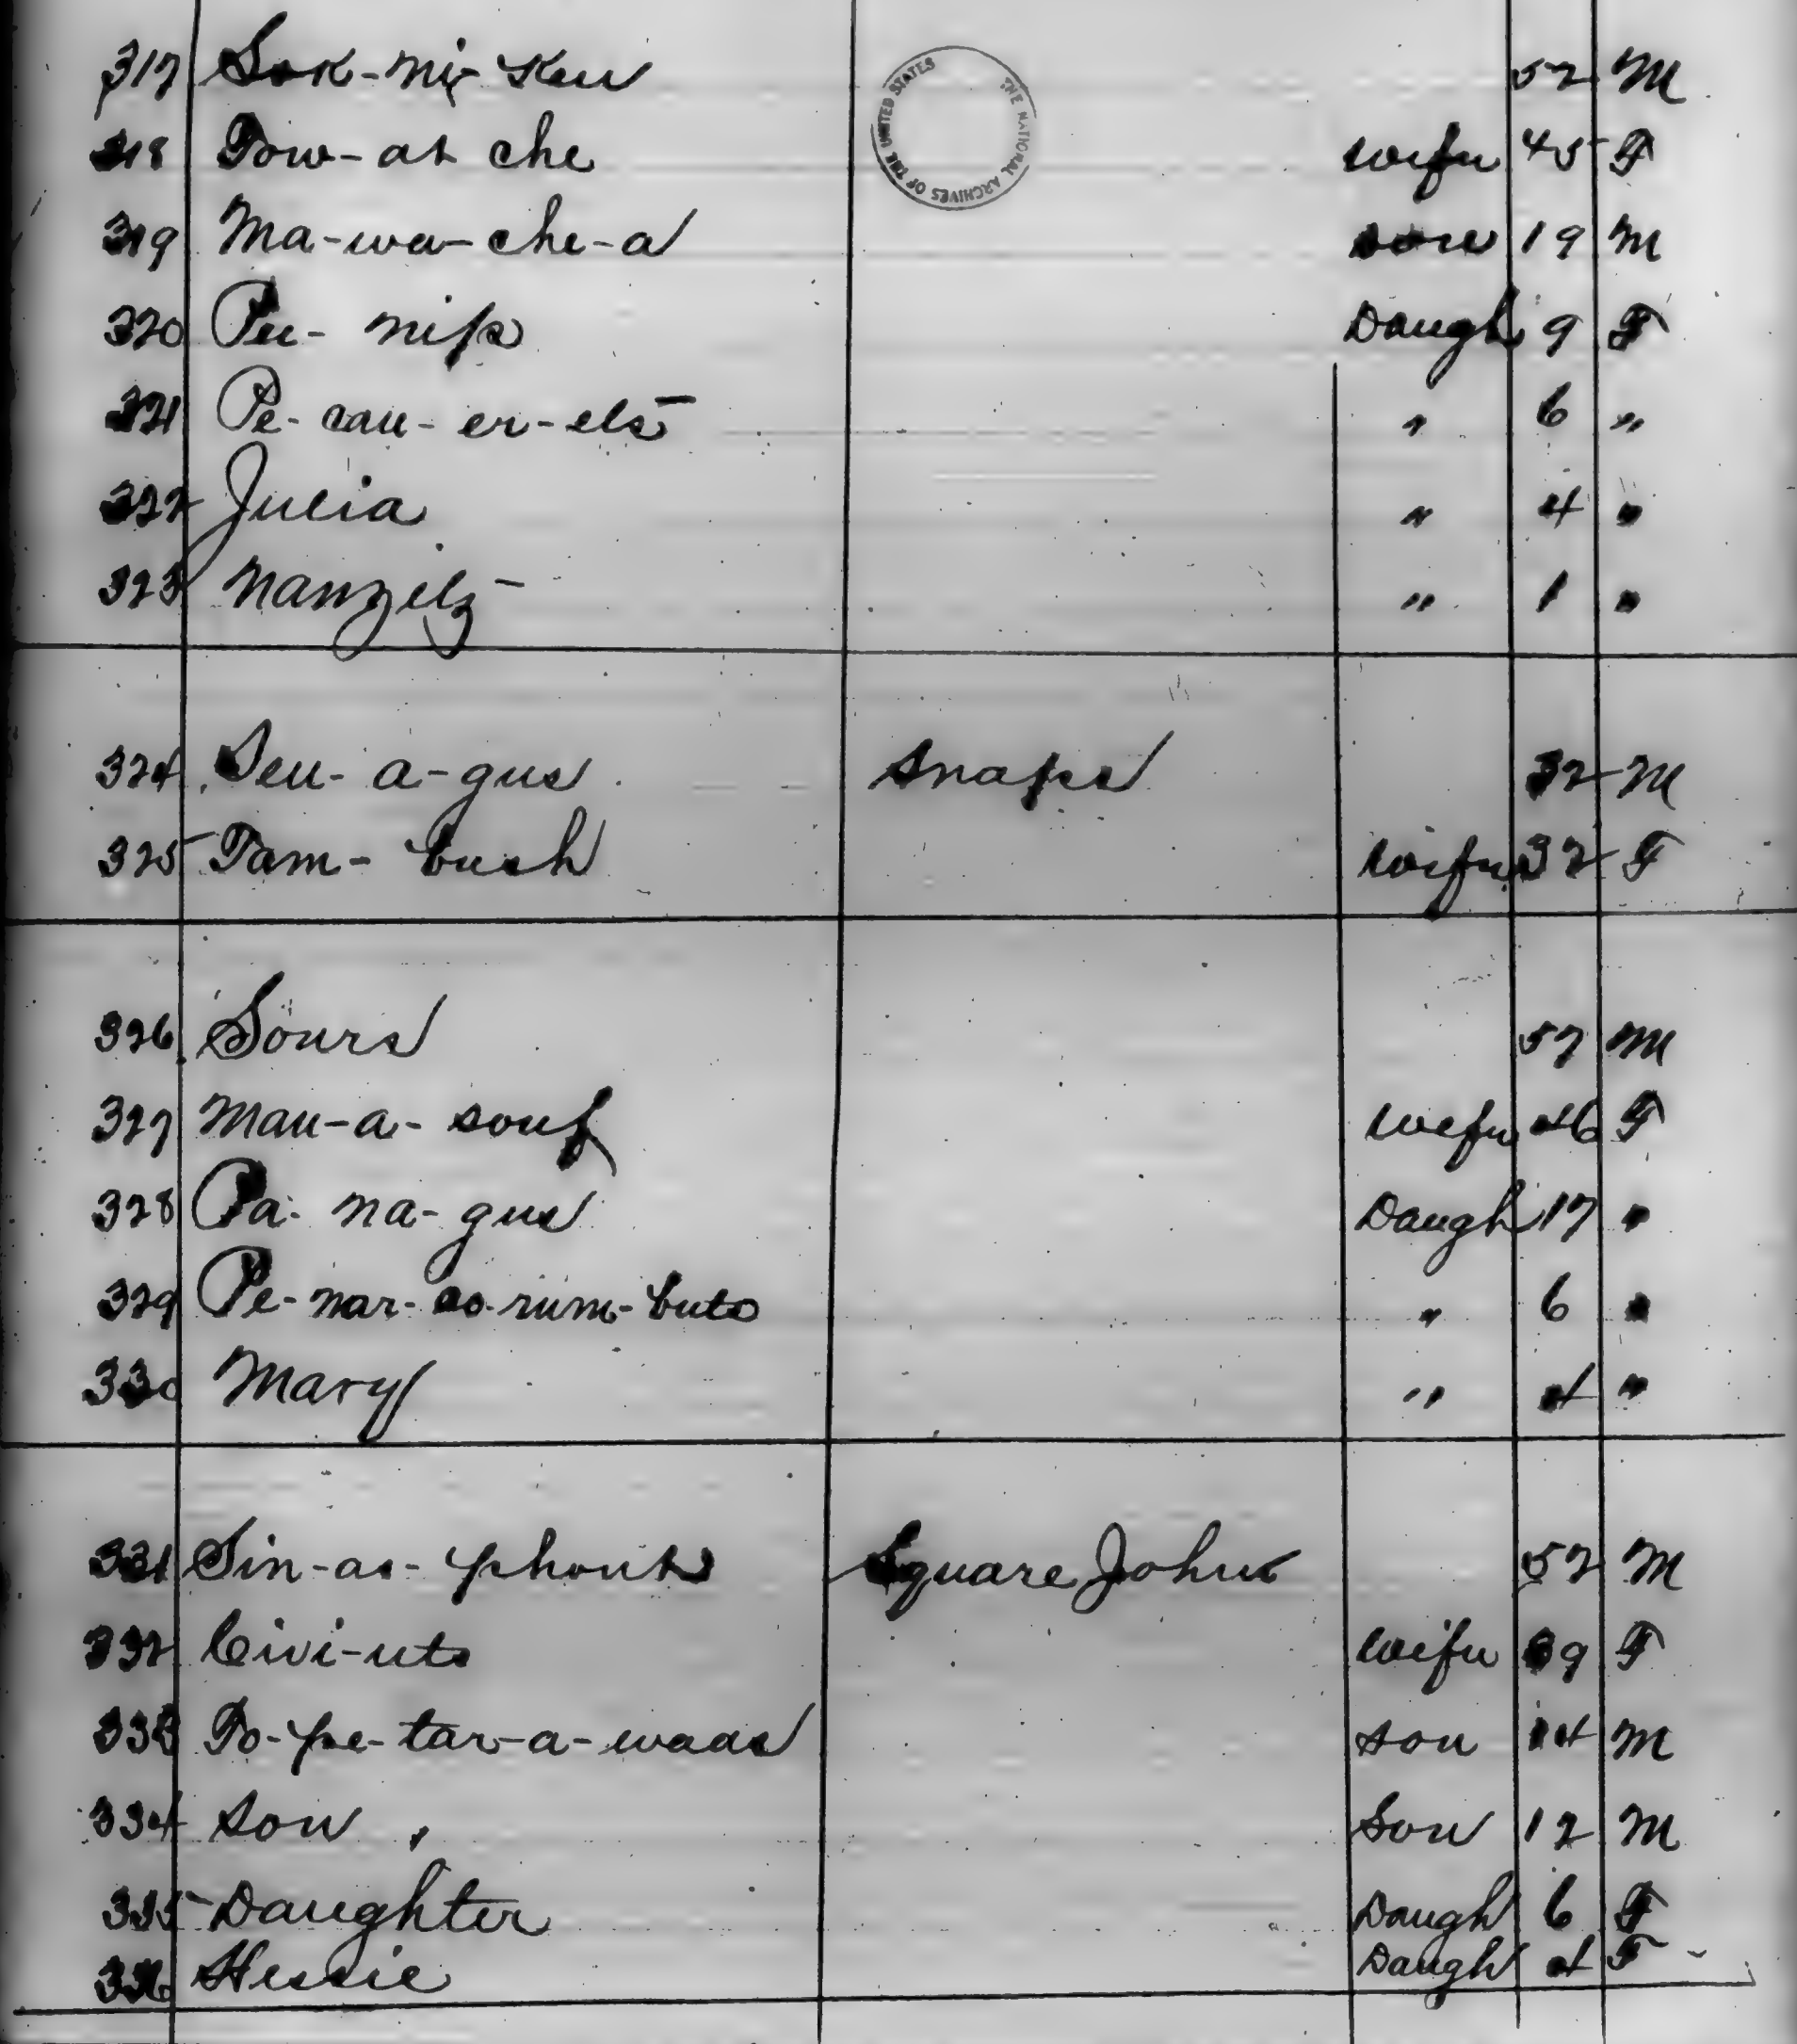 317 Sok-ni-keu 52 M
THE NATIONAL ARCHIVES OF THE UNITED STATES
318 Tow-at che wife 45 F
319 Ma-wa-che-a son 19 M
320 Peu-nip Daugh 9 F
321 Pe-cau-er-ets " 6 "
322 Julia " 4 "
323 Nanzitz " 1 "
324 Seu-a-gus Snaps 32 M
325 Tam-bush wife 32 F
326 Sours 57 M
327 Mau-a-souf wife 46 F
328 Pa-na-gus Daugh 17 "
329 Pe-nar-so-rum-buts " 6 "
330 Mary " 4 "
331 Sin-as-phouts Square John 52 M
332 Civi-uts wife 39 F
333 To-pe-tar-a-waas son 14 M
334 Son Son 12 M
335 Daughter Daugh 6 F
336 Hessie Daugh 4 F